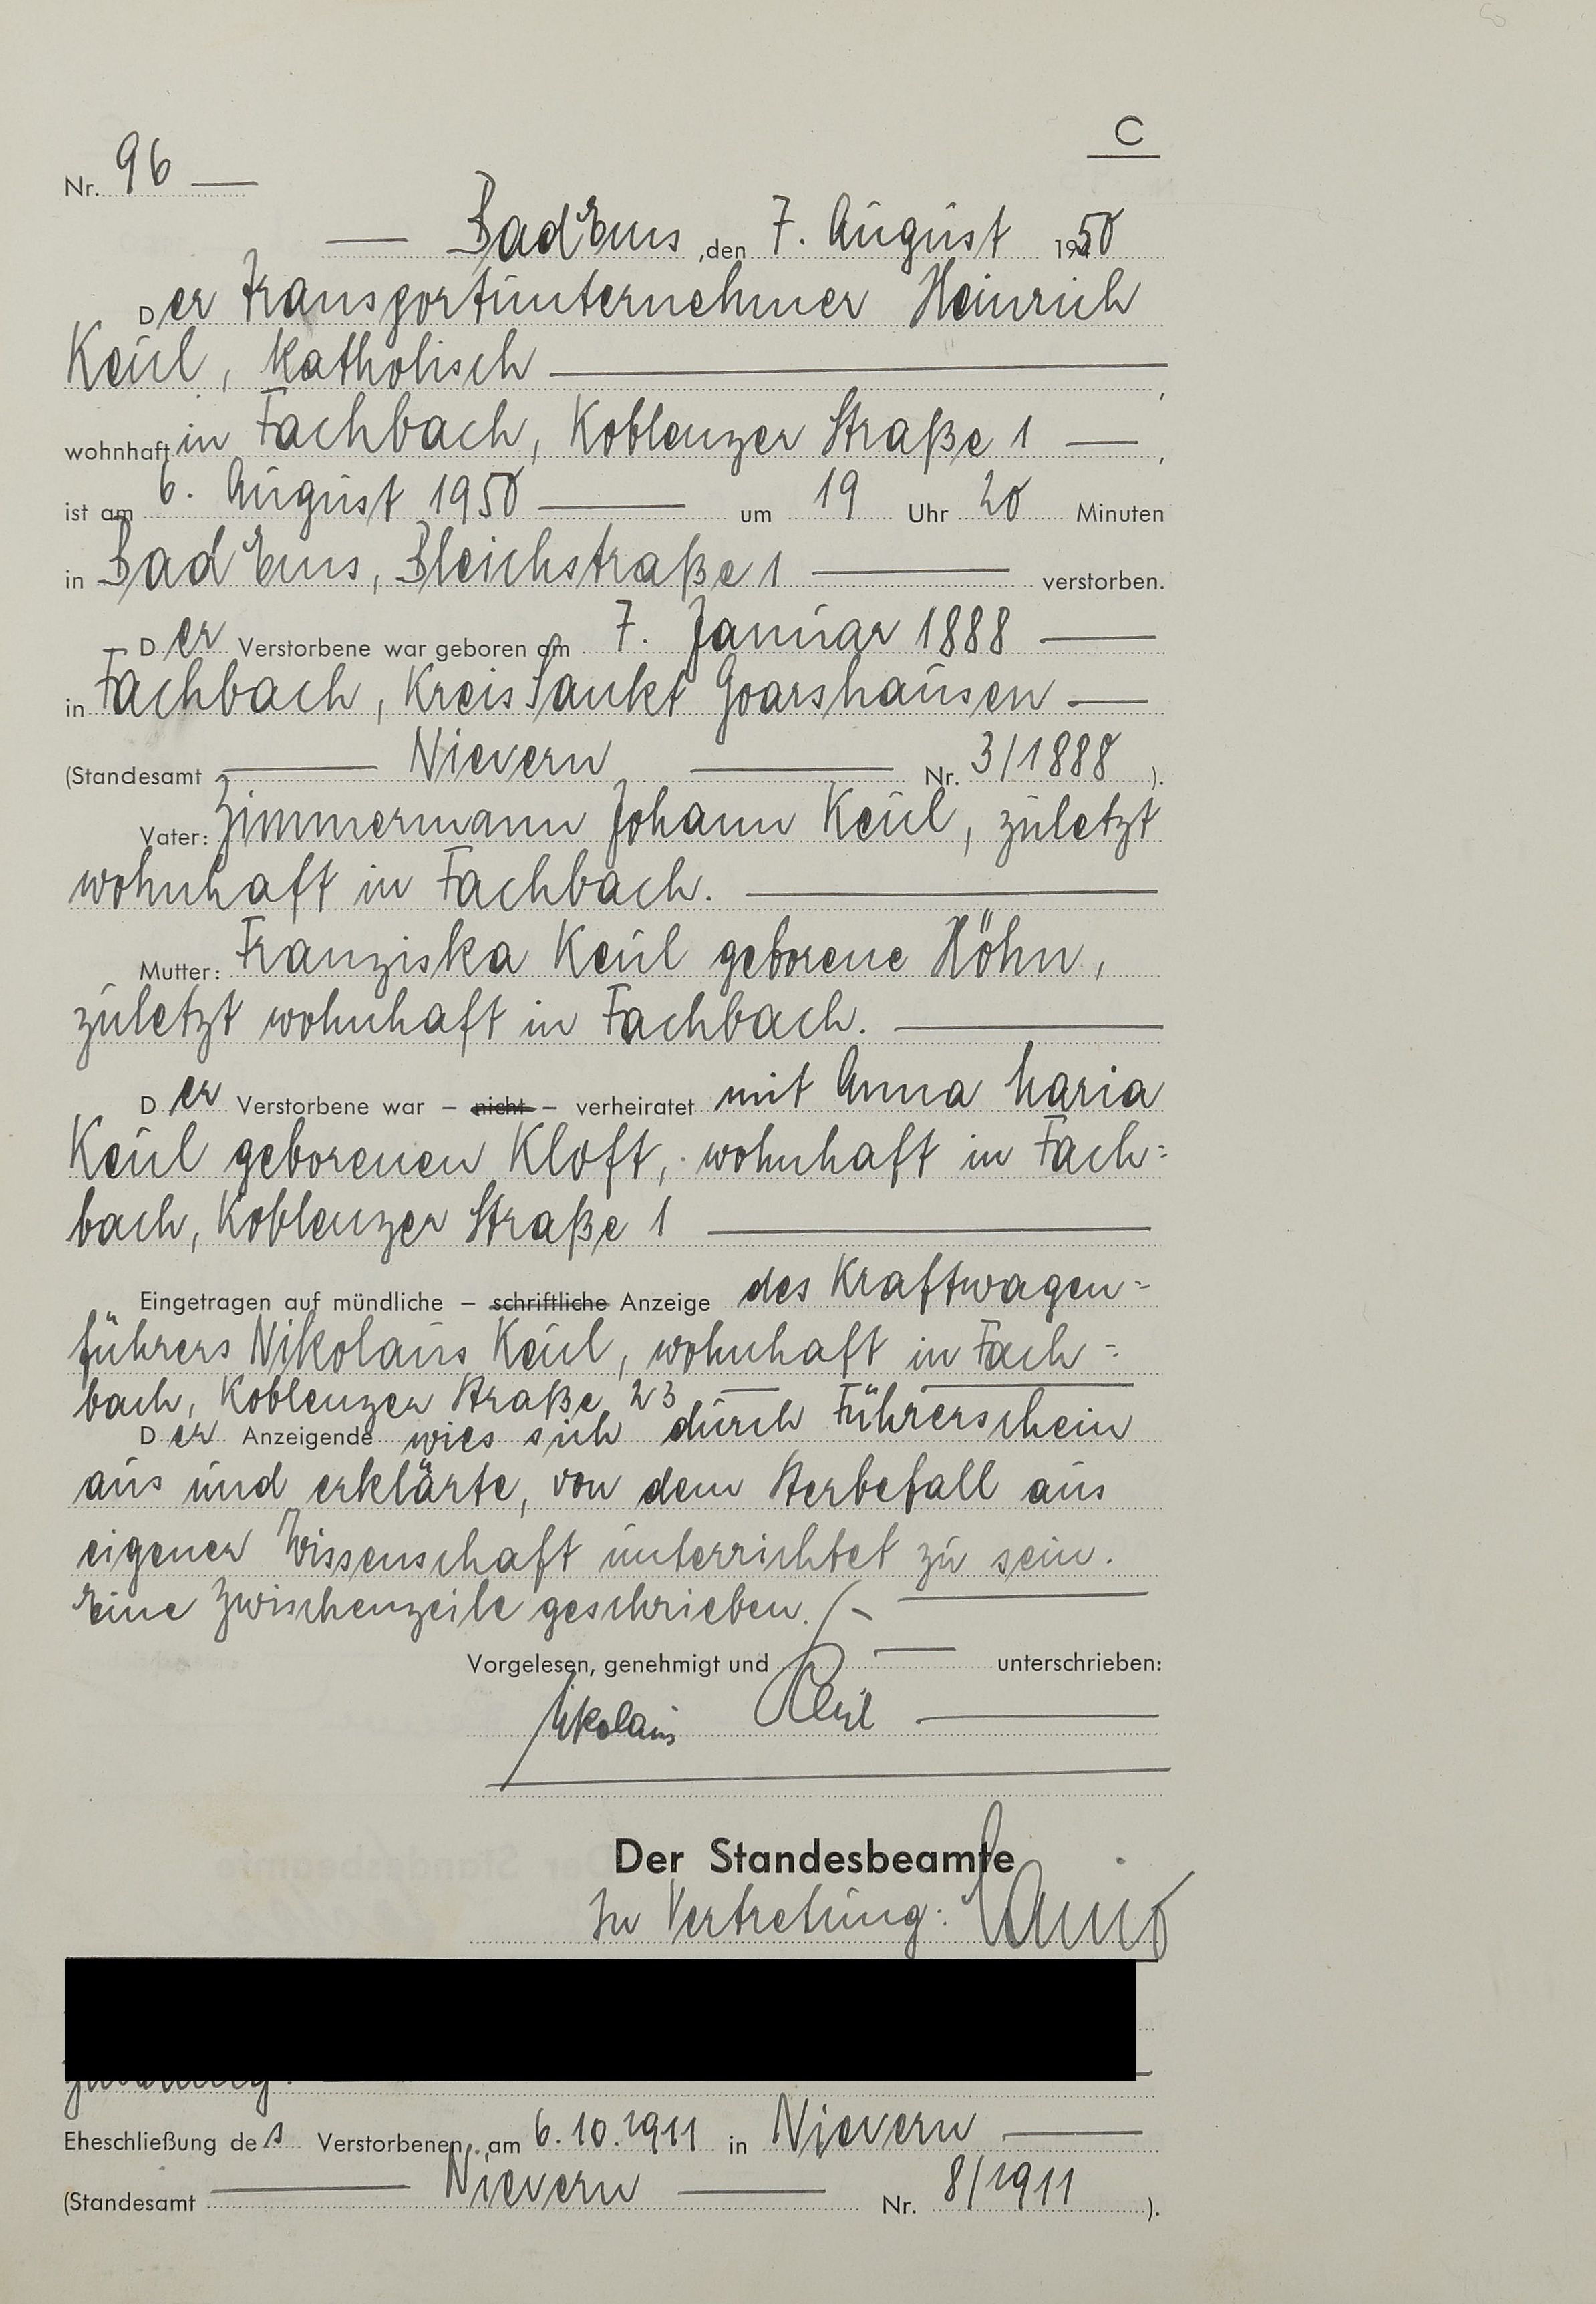 C
Nr. 96
Bad Ems, den 7. August 1950
Der Transportunternehmer Heinrich
Keul, katholisch
wohnhaft in Fachbach, Koblenzer Straße 1
ist am 6. August 1950 um 19 Uhr 20 Minuten
in Bad Ems, Bleichstraße 1 verstorben.
Der Verstorbene war geboren am 7. Januar 1888
in Fachbach, Kreis Sankt Goarshausen
(Standesamt Nievern Nr. 3/1888 ).
Vater: Zimmermann Johann Keul, zuletzt
wohnhaft in Fachbach.
Mutter: Franziska Keul geborene Höhn,
zuletzt wohnhaft in Fachbach.
Der Verstorbene war – nicht – verheiratet mit Anna Maria
Keul geborenen Kloft, wohnhaft in Fach=
bach, Koblenzer Straße 1
Eingetragen auf mündliche – schriftliche Anzeige des Kraftwagen=
führers Nikolaus Keul, wohnhaft in Fach=
bach, Koblenzer Straße 23
Der Anzeigende wies sich durch Führerschein
aus und erklärte, von dem Sterbefall aus
eigener Wissenschaft unterrichtet zu sein.
Eine Zwischenzeile geschrieben.
Vorgelesen, genehmigt und unterschrieben:
Nikolaus Keul
Der Standesbeamte
In Vertretung:
Eheschließung des Verstorbenen am 6.10.1911 in Nievern
(Standesamt Nievern Nr. 8/1911 ).